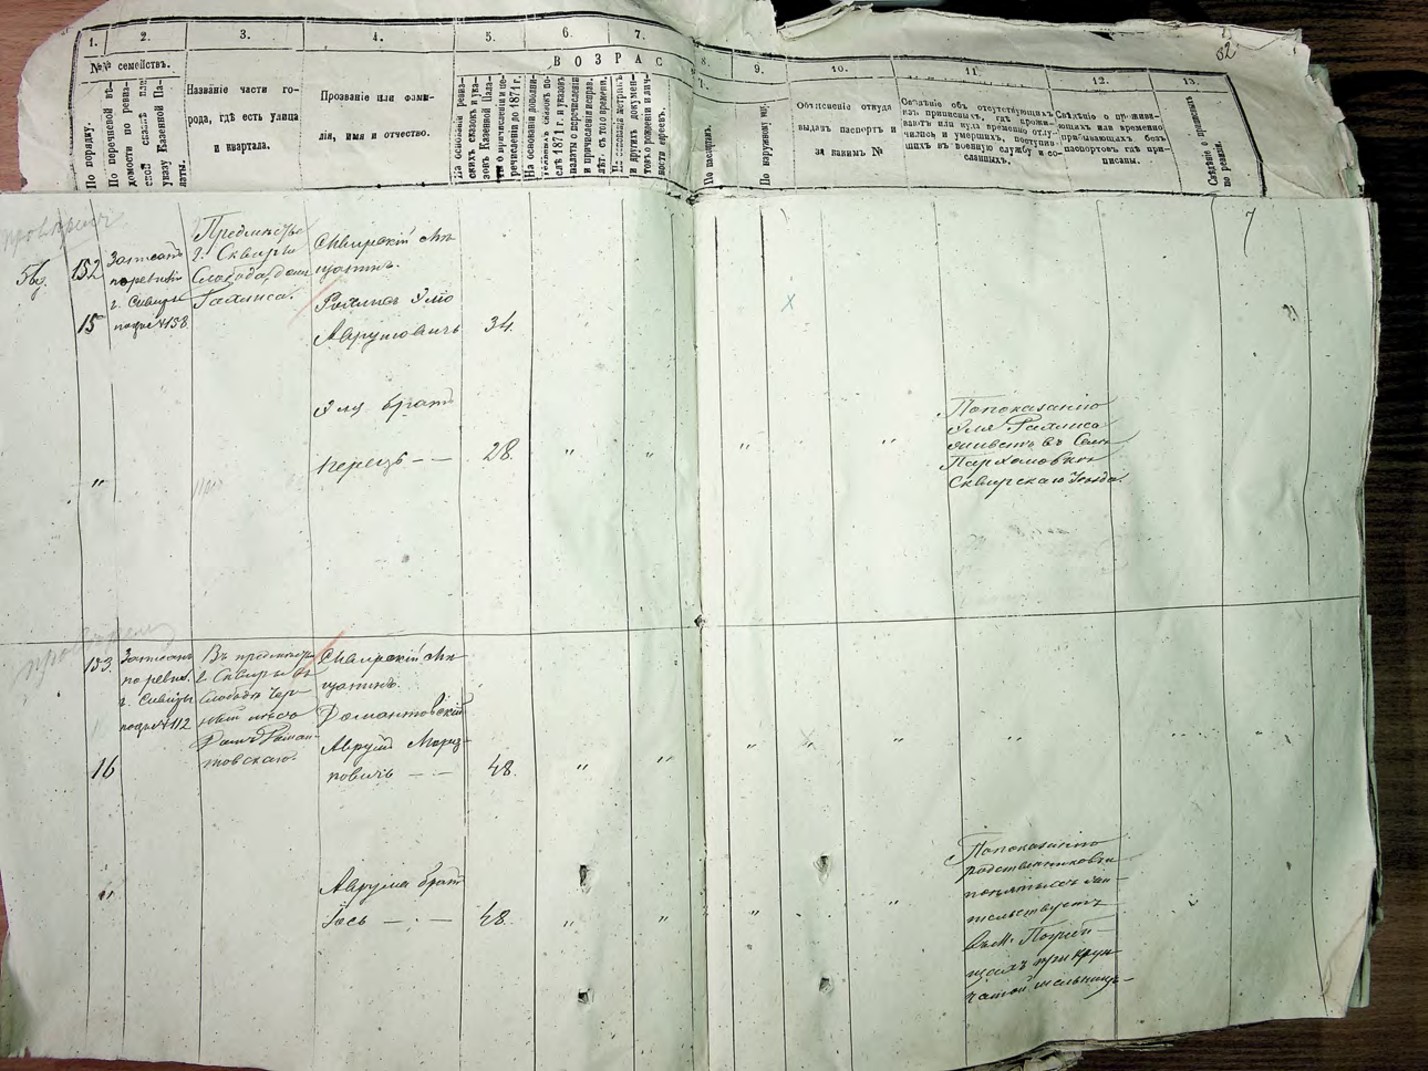 32
1. 2. 3. 4. 5. 6. 7. 8. 9. 10. 11. 12. 13.
№№ семействъ.
ВОЗРАС
По порядку.
По перечневой вѣ-
домости по ревиз-
ской сказкѣ или
указу Казенной Па-
латы.
Названіе части го-
рода, гдѣ есть улица
и квартала.
Прозваніе или фами-
лія, имя и отчество.
На основаніи ревиз-
скихъ сказокъ и ука-
зовъ Казенной Пала-
ты о причисленіи и пе-
речисленіи до 1871 г.
На основаніи дополни-
тельныхъ сказокъ по-
слѣ 1871 г. и указовъ
палаты о перечисленіи
и причисленіи исправ.
лѣт. съ того времени.
На основаніи метрикъ
и другихъ докумен-
товъ о рожденіи и лич-
ности евреевъ.
По паспортамъ.
По наружному виду.
Объясненіе откуда
выданъ паспортъ и
за какимъ №
Свѣдѣніе объ отсутствующихъ
изъ приписныхъ, гдѣ прожи-
ваютъ или куда временно отлу-
чились и умершихъ, поступив-
шихъ въ военную службу и со-
сланныхъ.
Свѣдѣніе о прожива-
ющихъ или временно
пребывающихъ безъ
паспортовъ гдѣ при-
писаны.
Свѣдѣніе о
по ревизіи.
152
15
Записанъ
по ревизіи
г. Сквиры
подъ №158
Предмѣстье
г. Сквиры
Слобода, домъ
Рахлиса.
Сквирскій мѣ-
щанинъ.
Рахлисъ Эліо
Аврумовичъ 34.
Эля братъ
Перецъ — — 28. " " " "
По показанію
Эля Рахлиса
живетъ въ Селѣ
Пархомовкѣ
Сквирскаго Уѣзда.
7
"
153.
16
Записанъ
по ревиз.
г. Сквиры
подъ №112
Въ предмѣстьи
г. Сквиры въ
Слободѣ
домъ Роман-
товскаго.
Сквирскій мѣ-
щанинъ.
Романтовскій
Аврумъ
повичъ — — 48. " " " " "
"
Аврума братъ
Іось — . — 48. " " " "
По показанію
родственниковъ
жи-
тельствуетъ
въ м. Погреби-
щахъ при круп-
чатой мельницѣ —